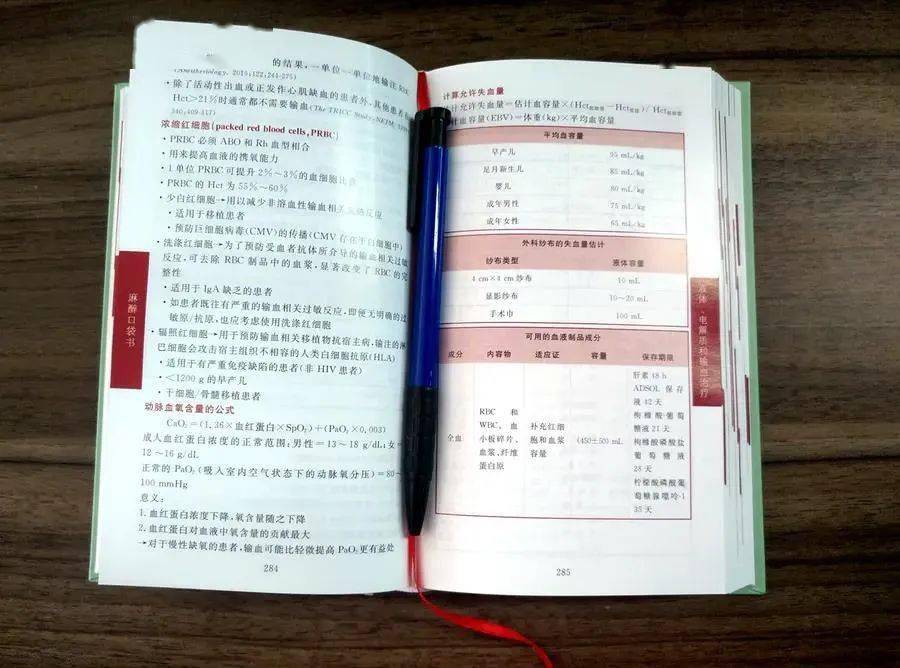 的结果,一单位一单位地输注
(Anesthesiology, 2015;122:244-275)
• 除了活动性出血或正发作心肌缺血的患者外,其他患者
Hct>21%时通常都不需要输血(The TRICC Study, NEJM,
340:409-417)
浓缩红细胞(packed red blood cells, PRBC)
• PRBC 必须 ABO 和 Rh 血型相合
• 用来提高血液的携氧能力
• 1 单位 PRBC 可提升 2%~3%的血细胞比容
• PRBC 的 Hct 为 55%~60%
• 少白红细胞→用以减少非溶血性输血相关发热反应
• 适用于移植患者
• 预防巨细胞病毒(CMV)的传播(CMV 存在于白细胞中)
• 洗涤红细胞→为了预防受血者抗体所介导的输血相关过敏
反应,可去除 RBC 制品中的血浆,显著改变了 RBC 的完
整性
• 适用于 IgA 缺乏的患者
• 如患者既往有严重的输血相关过敏反应,即便无明确的过
敏原/抗原,也应考虑使用洗涤红细胞
• 辐照红细胞→用于预防输血相关移植物抗宿主病,输注的淋
巴细胞会攻击宿主组织不相容的人类白细胞抗原(HLA)
• 适用于有严重免疫缺陷的患者(非 HIV 患者)
• <1200 g 的早产儿
• 干细胞/骨髓移植患者
动脉血氧含量的公式
CaO₂=(1.36×血红蛋白×SpO₂)+(PaO₂×0.003)
成人血红蛋白浓度的正常范围:男性=13~18 g/dL;女
12~16 g/dL
正常的 PaO₂(吸入室内空气状态下的动脉氧分压)=80~
100 mmHg
意义:
1. 血红蛋白浓度下降,氧含量随之下降
2. 血红蛋白对血液中氧含量的贡献最大
→对于慢性缺氧的患者,输血可能比轻微提高 PaO₂ 更有益处
284
麻醉口袋书
计算允许失血量
估计允许失血量=估计血容量×(Hct 
估计血容量(EBV)=体重(kg)×平均血容量
平均血容量
早产儿 95 mL/kg
足月新生儿 85 mL/kg
婴儿 80 mL/kg
成年男性 75 mL/kg
成年女性 65 mL/kg
外科纱布的失血量估计
纱布类型 液体容量
4 cm×4 cm纱布 10 mL
显影纱布 10~20 mL
手术巾 100 mL
可用的血液制品成分
成分 内容物 适应证 容量 保存期限
全血 RBC 和 WBC、血小板碎片、血浆、纤维蛋白原 补充红细胞和血浆容量 (450±50) mL 肝素 48 h
ADSOL 保存
液 42 天
枸橼酸葡萄
糖液 21天
枸橼酸磷酸盐
葡萄糖液
28 天
柠檬酸磷酸葡
萄糖腺嘌呤-1
35 天
285
液体、电解质和输血治疗